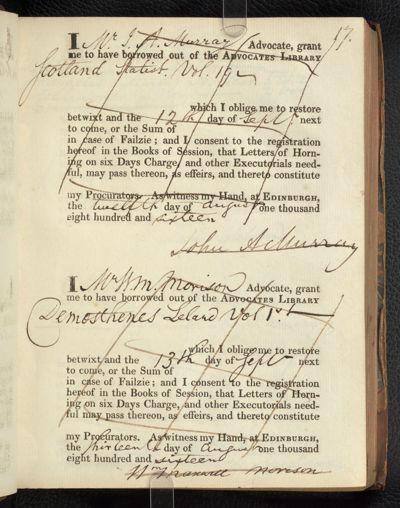 17.
I Mr. J. A. Murray Advocate, grant
me to have borrowed out of the ADVOCATES LIBRARY
Scotland Statist. Vol. 19.
which I oblige me to restore
betwixt and the 12th day of Septr next
to come, or the Sum of
in case of Failzie; and I consent to the registration
hereof in the Books of Session, that Letters of Horn-
ing on six Days Charge, and other Executorials need-
ful, may pass thereon, as effeirs, and thereto constitute
my Procurators. As witness my Hand, at EDINBURGH,
the twelfth day of august one thousand
eight hundred and sixteen
John A Murray
I Mr Wm. Morison Advocate, grant
me to have borrowed out of the ADVOCATES LIBRARY
Demosthenes Leland Vol 1.
which I oblige me to restore
betwixt and the 13th day of Septr next
to come, or the Sum of
in case of Failzie; and I consent to the registration
hereof in the Books of Session, that Letters of Horn-
ing on six Days Charge, and other Executorials need-
ful may pass thereon, as effeirs, and thereto constitute
my Procurators. As witness my Hand, at EDINBURGH,
the thirteenth day of August one thousand
eight hundred and sixteen
Wm Maxwell Morison